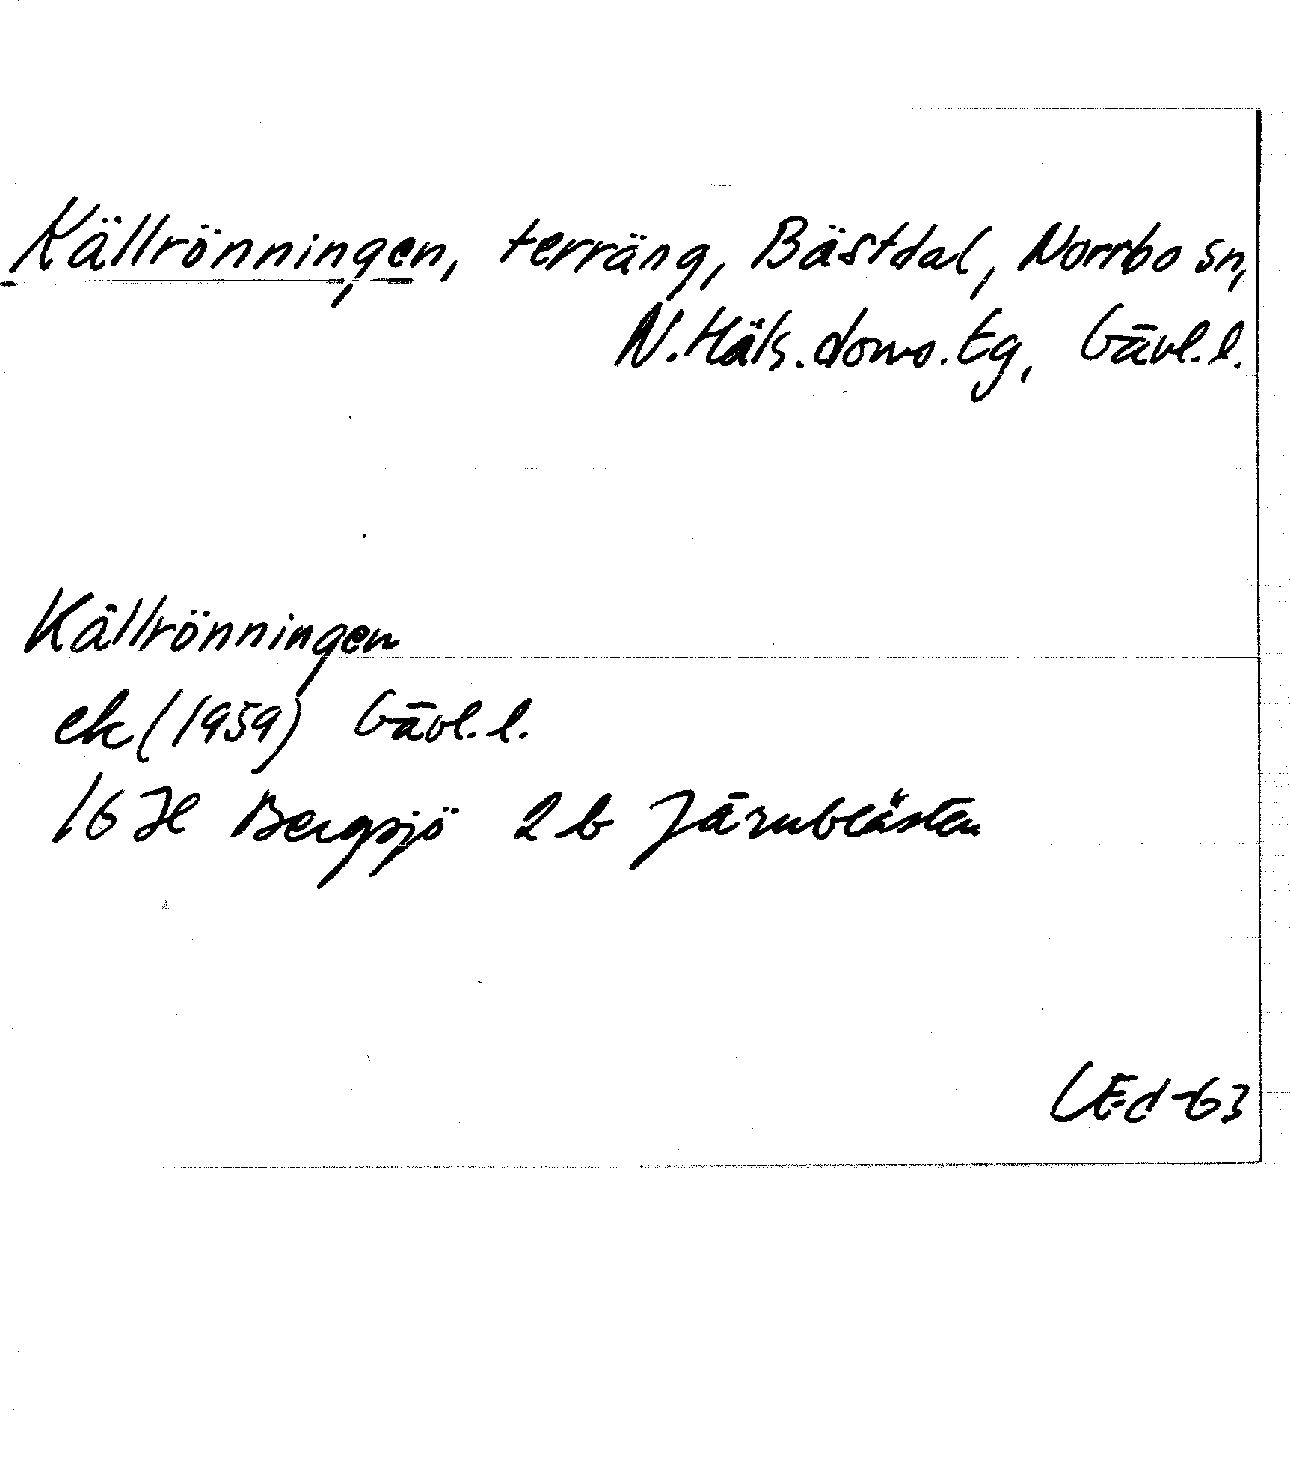 Källrönningen, terräng, Bästdal, Norrbo sn,
N. Häls. doms. tg, Gävl. l.
Källrönningen
ek (1959) Gävl. l.
16 H Bergsjö 2 b Järnblästen
LEd -63